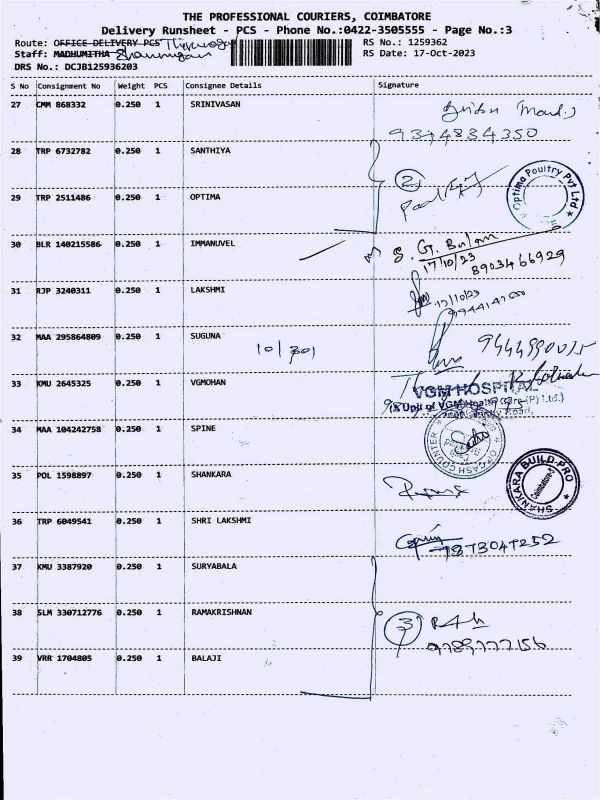 THE PROFESSIONAL COURIERS, COIMBATORE
Delivery Runsheet - PCS - Phone No.:0422-3505555 - Page No.:3
Route: OFFICE DELIVERY PCS
RS No.: 1259362
Staff: MADHUMITHA Shanmugam
RS Date: 17-Oct-2023
DRS No.: DCJB125936203
S No Consignment No Weight PCS Consignee Details Signature
27 CMM 868332 0.250 1 SRINIVASAN
9374834350
28 TRP 6732782 0.250 1 SANTHIYA
2
Optima Poultry Pvt Ltd
29 TRP 2511486 0.250 1 OPTIMA
30 BLR 140215586 0.250 1 IMMANUVEL
S. GT. Balan
17/10/23
8903466929
31 RJP 3240311 0.250 1 LAKSHMI
17/10/23
32 MAA 295864809 0.250 1 SUGUNA
10/301
33 KMU 2645325 0.250 1 VGMOHAN
VGM HOSPITAL
(A Unit of VGM Health Care (P) Ltd.)
34 MAA 104242758 0.250 1 SPINE
CASH COUNTER
35 POL 1598897 0.250 1 SHANKARA
SHANKARA BUILD-PRO
Coimbatore
36 TRP 6049541 0.250 1 SHRI LAKSHMI
7873047252
37 KMU 3387920 0.250 1 SURYABALA
38 SLM 330712776 0.250 1 RAMAKRISHNAN
3
9789777156
39 VRR 1704805 0.250 1 BALAJI